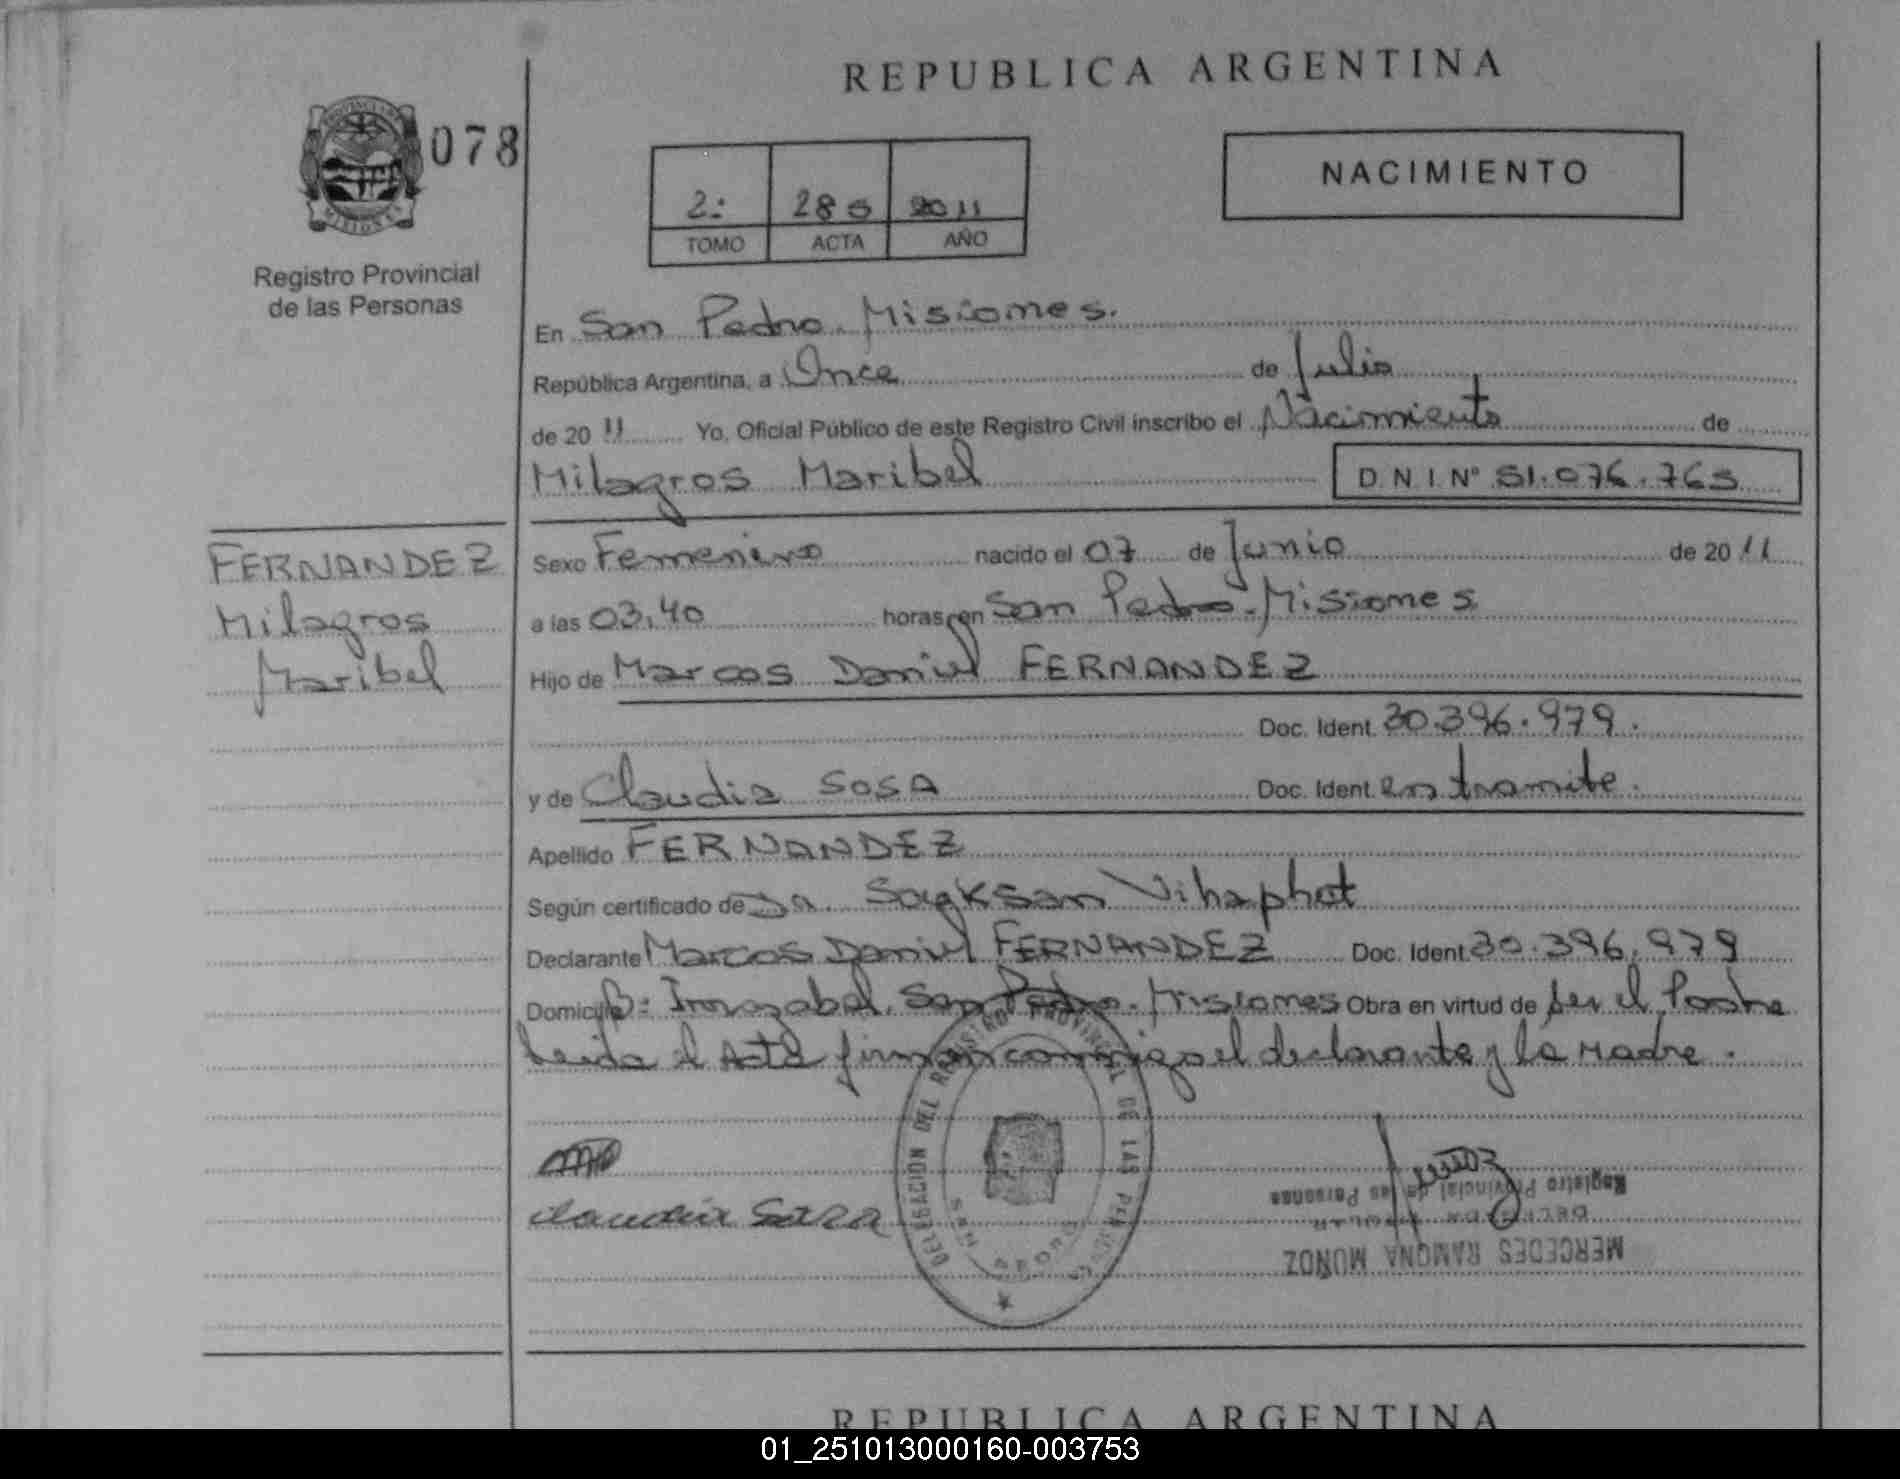 REPUBLICA ARGENTINA
078
NACIMIENTO
2: 285 2011
TOMO ACTA AÑO
Registro Provincial
de las Personas
En San Pedro. Misiones.
República Argentina, a Once de Julio
de 20 11 Yo, Oficial Público de este Registro Civil inscribo el Nacimiento de
Milagros Maribel D.N.I. Nº 51.076.765
FERNANDEZ
Milagros
Maribel
Sexo Femenino nacido el 07 de Junio de 2011
a las 03,40 horas, en San Pedro. Misiones
Hijo de Marcos Daniel FERNANDEZ
Doc. Ident. 30.396.979.
y de Claudia SOSA Doc. Ident. en tramite.
Apellido FERNANDEZ
Según certificado de Vihaphat
Declarante Marcos Daniel FERNANDEZ Doc. Ident. 30.396.979
Domicilio B: Irrazabal. San Pedro. Misiones Obra en virtud de ser el Padre
leida el Acta firman conmigo el declarante y la Madre.
DELEGACION DEL REGISTRO PROVINCIAL DE LAS PERSONAS
SAN PEDRO
Claudia Sosa
MERCEDES RAMONA MUÑOZ
DELEGADA TITULAR
Registro Provincial de las Personas
REPUBLICA ARGENTINA
01_251013000160-003753